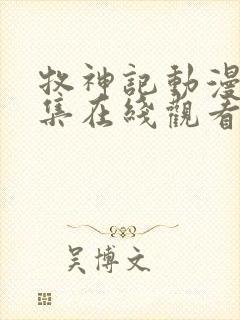 牧神記動漫
集在綫觀看
吴博文